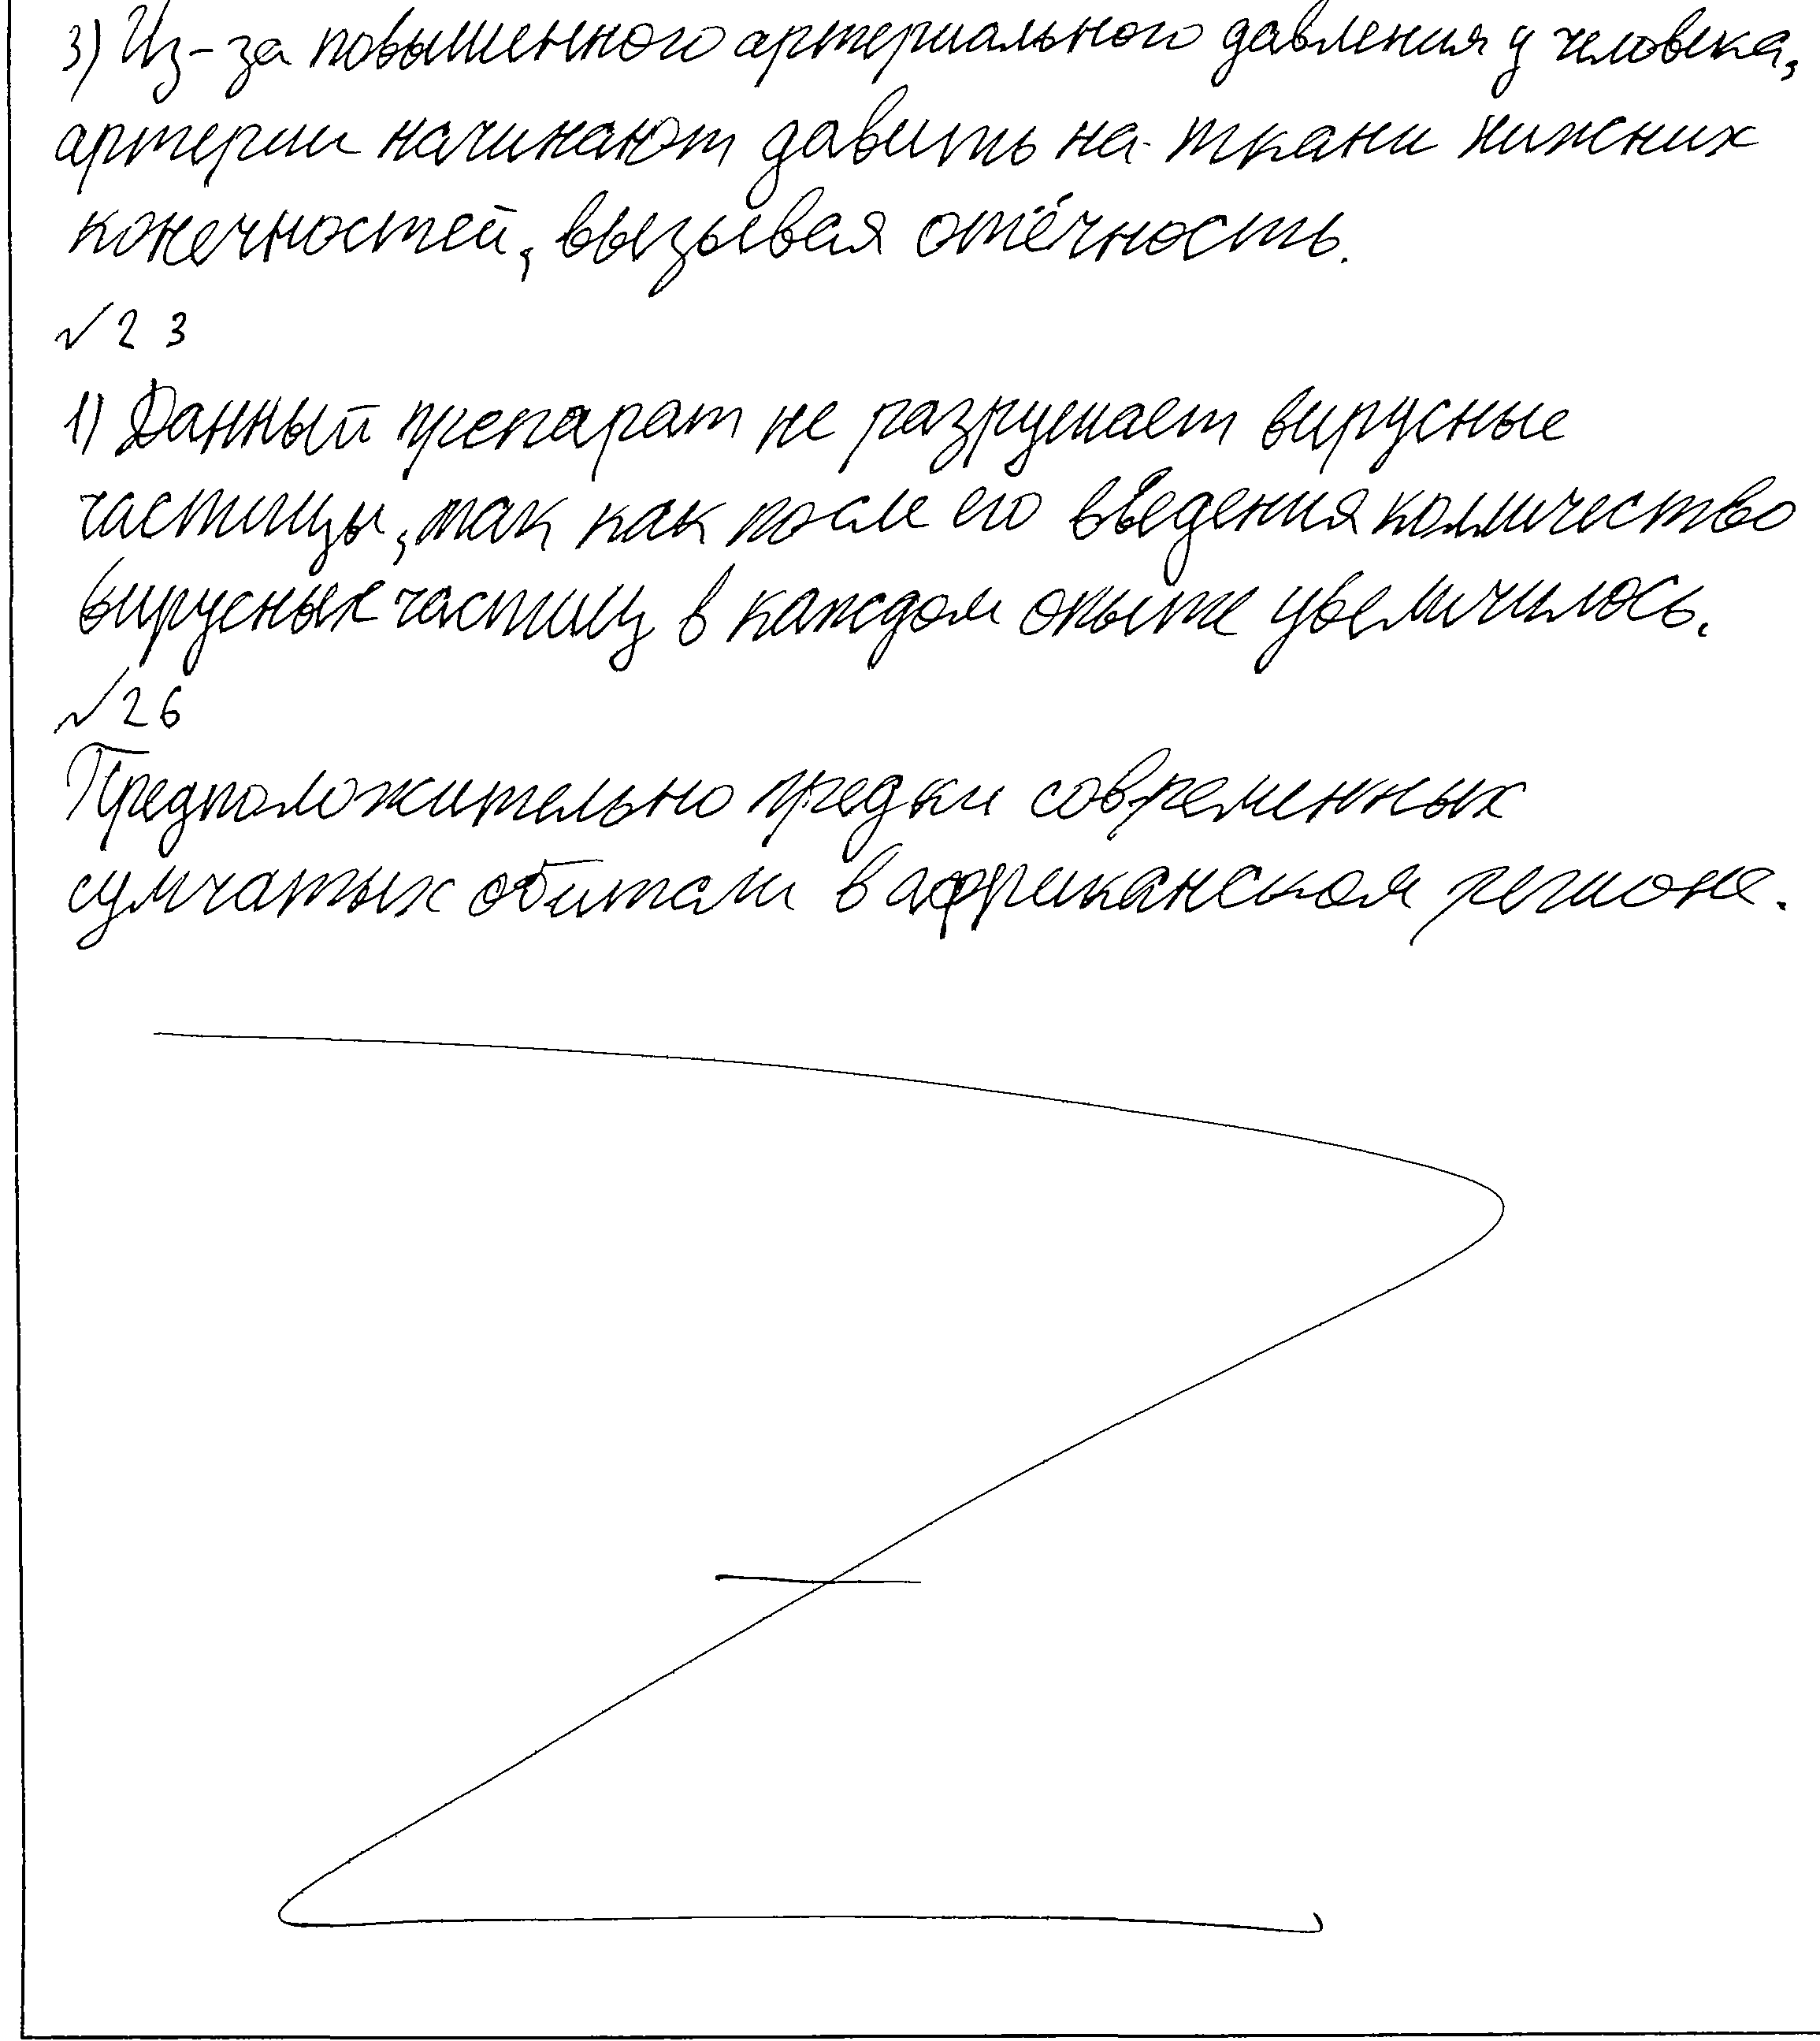 3) Из-за повышенного артериального давления у человека,
артерии начинают давить на ткани нижних
конечностей, вызывая отёчность.
√23
1) Данный препарат не разрушает вирусные
частицы, так как после его введения колличество
вирусных частиц в каждом опыте увеличилось.
√26
Предположительно предки современных
сумчатых обитали в африканском регионе.